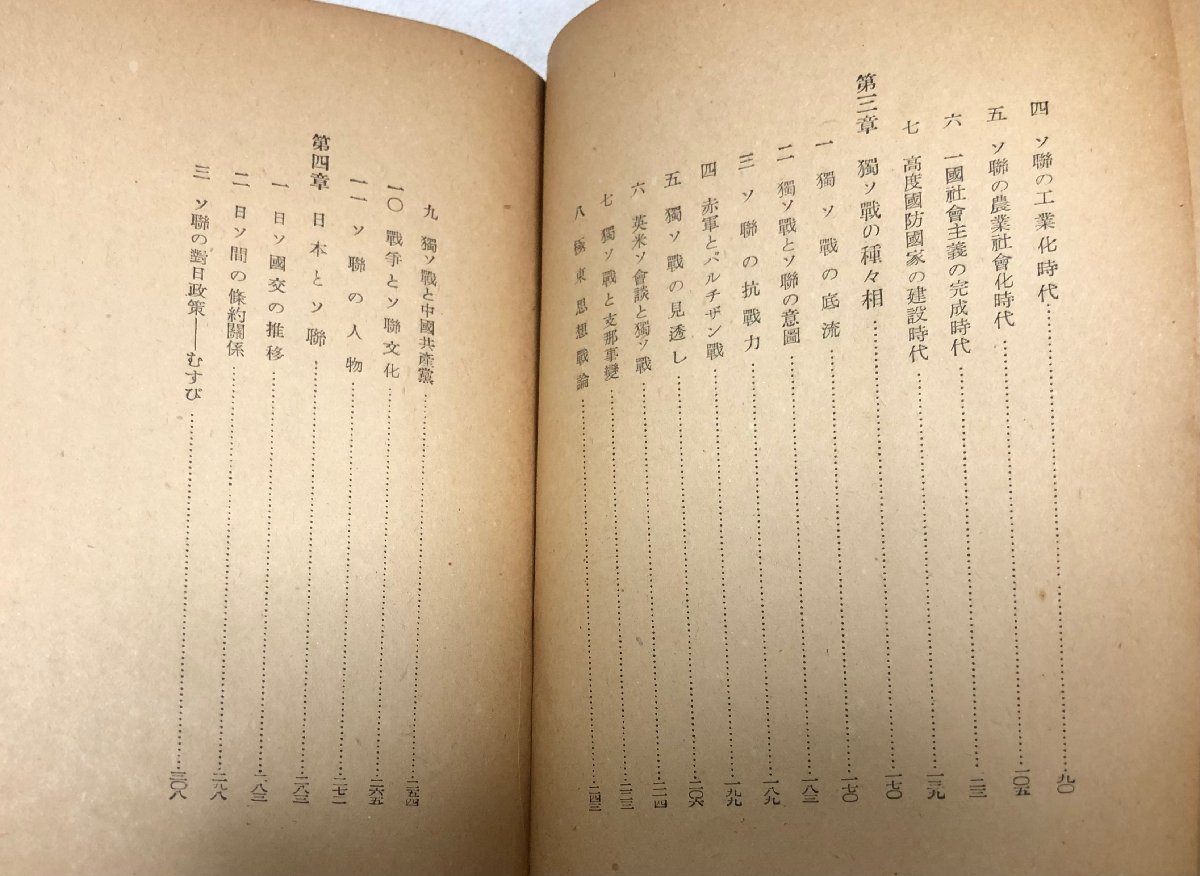 四 ソ聯の工業化時代……九〇
五 ソ聯の農業社會化時代……一〇五
六 一國社會主義の完成時代……
七 高度國防國家の建設時代……一三九
第三章 獨ソ戰の種々相……一七〇
一 獨ソ戰の底流……一七〇
二 獨ソ戰とソ聯の意圖……一八三
三 ソ聯の抗戰力……一八九
四 赤軍とパルチザン戰……一九九
五 獨ソ戰の見透し……二〇六
六 英米ソ會談と獨ソ戰……二一四
七 獨ソ戰と支那事變……
八 極東思想戰論……二四三
九 獨ソ戰と中國共產黨……二五四
一〇 戰爭とソ聯文化……二六五
一一 ソ聯の人物……二七二
第四章 日本とソ聯……二八三
一 日ソ國交の推移……二八三
二 日ソ間の條約關係……二九八
三 ソ聯の對日政策――むすび……三〇八